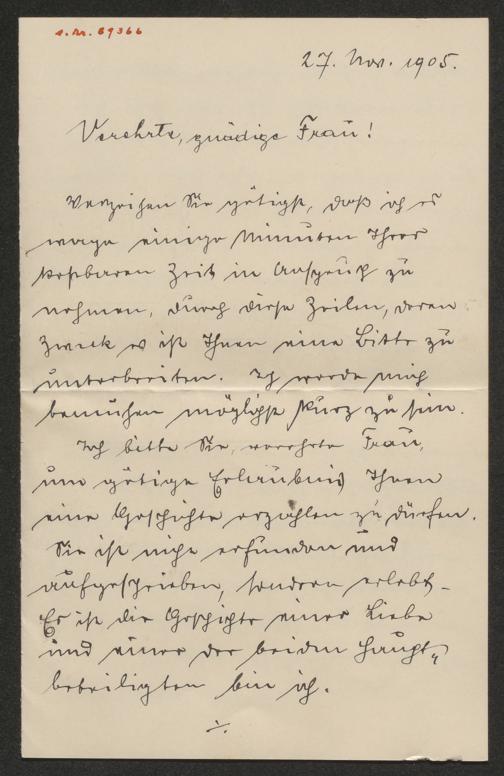 I.N. 69366
27. Nov. 1905.
Verehrte, gnädige Frau!
Verzeihen Sie gütigst, daß ich es
wage einige Minuten Ihrer
kostbaren Zeit in Anspruch zu
nehmen, durch diese Zeilen, deren
Zweck es ist Ihnen eine Bitte zu
unterbreiten. Ich werde mich
bemühen möglichst kurz zu sein.
Ich bitte Sie, verehrte Frau,
um gütige Erlaubnis Ihnen
eine Geschichte erzählen zu dürfen.
Sie ist nicht erfunden und
aufgeschrieben, sondern erlebt.
Es ist die Geschichte einer Liebe
und einer der beiden Haupt„
beteiligten bin ich.
./.